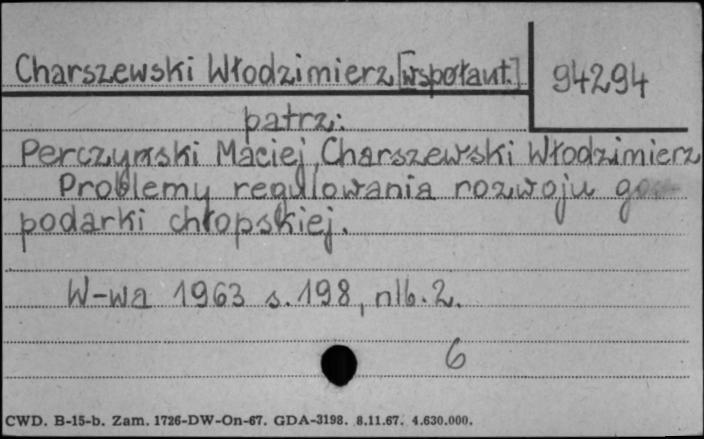 Charszewski Włodzimierz [współaut.] 94294
patrz:
Perczyński Maciej, Charszewski Włodzimierz
Problemy regulowania rozwoju gos-
podarki chłopskiej.
W-wa 1963 s. 198, nlb. 2.
6
CWD. B-15-b. Zam. 1726-DW-On-67. GDA-3198. 8.11.67. 4.630.000.